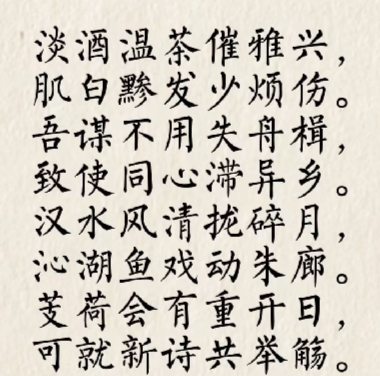 淡酒温茶催雅兴，
肌白黪发少烦伤。
吾谋不用失舟楫，
致使同心滞异乡。
汉水风清拢碎月，
沁湖鱼戏动朱廊。
芰荷会有重开日，
可就新诗共举觞。